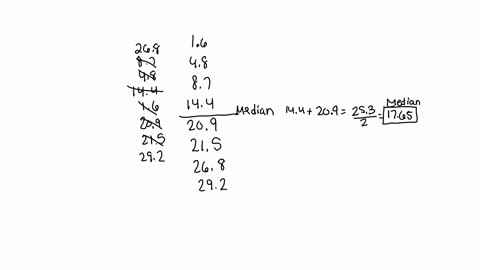 26.8
8.7
4.8
14.4
1.6
20.9
21.5
29.2
1.6
4.8
8.7
14.4
20.9
21.5
26.8
29.2
Median 14.4 + 20.9 = 25.3 / 2 = 17.65
Median